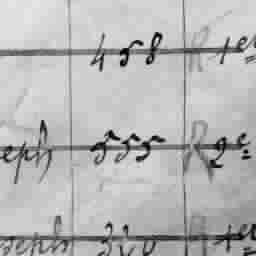 458 R 1er
eph 555 R 2e
seph 320 R 1er